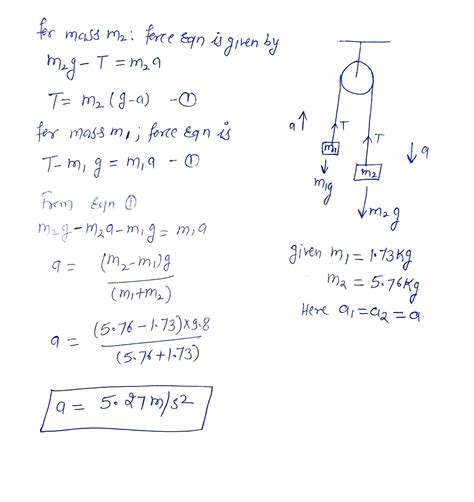 for mass m₂: force eqn is given by
m₂g - T = m₂a
T = m₂(g-a) - ①
for mass m₁; force eqn is
T - m₁g = m₁a - ①
From eqn ①
m₂g - m₂a - m₁g = m₁a
a = (m₂-m₁)g / (m₁+m₂)
a = (5.76 - 1.73)×9.8 / (5.76+1.73)
a = 5.27 m/s²
a↑
T
T
m₁
m₂
↓a
m₁g
m₂g
given m₁ = 1.73kg
m₂ = 5.76kg
Here a₁=a₂=a